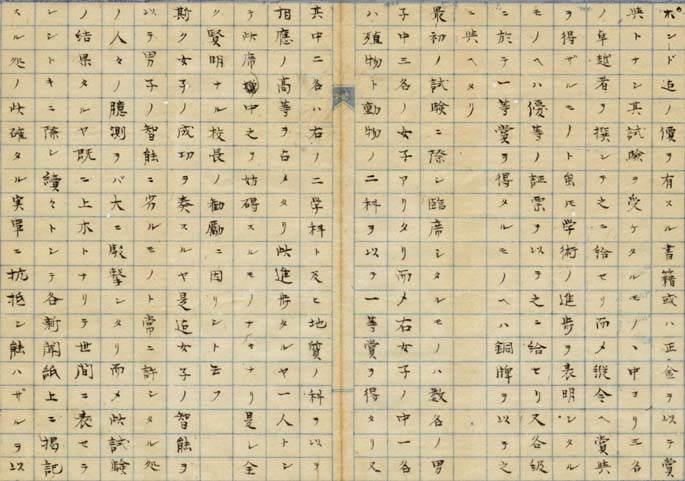 ホ゜ンド迠ノ價ヲ有スル書籍或ハ正金ヲ以テ賞
與トナシ其試験ヲ受ケタルモノヽ中ヨリ三名
ノ卓越者ヲ撰シテ之ニ給セリ而メ縦令ヘ賞與
ヲ得ザルモノト虽モ学術ノ進歩ヲ表明シタル
モノヘハ優等ノ証票ヲ以テ之ニ給セリ又各級
ニ於テ一等賞ヲ得タルモノヘハ銅牌ヲ以テ之
ニ與ヘタリ
最初ノ試験ニ際シ臨席シタルモノハ数名ノ男
子中三名ノ女子アリタリ而メ右女子ノ中一名
ハ殖物ト動物ノ二科ヲ以テ一等賞ヲ得タリ又
其中二名ハ右ノ二学科ト及ヒ地質ノ科ヲ以テ
相應ノ高等ヲ占メタリ此進歩タルヤ一人トシ
テ此席中之ヲ妨碍スルモノナキナリ是レ全
ク賢明ナル校長ノ勧励ニ因リシト云フ
斯ク女子ノ成功ヲ奏スルヤ是迠女子ノ智能ヲ
以テ男子ノ智能ニ劣ルモノト常ニ許シタル処
ノ人々ノ臆測ヲバ大ニ駁撃シタリ而メ此試験
ノ結果タルヤ既ニ上木トナリテ世間ニ表セラ
レントキニ際シ續々トシテ各新聞紙上ニ掲記
スル処ノ此確タル実畢ニ抗抵シ能ハザルヲ以